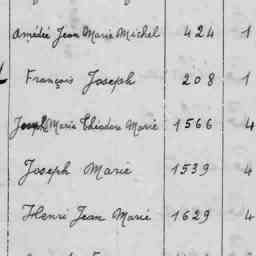 Amédée Jean Marie Michel 424 1
François Joseph 208 1
Joseph Marie Théodore Marie 1566 4
Joseph Marie 1539 4
Henri Jean Marie 1629 4